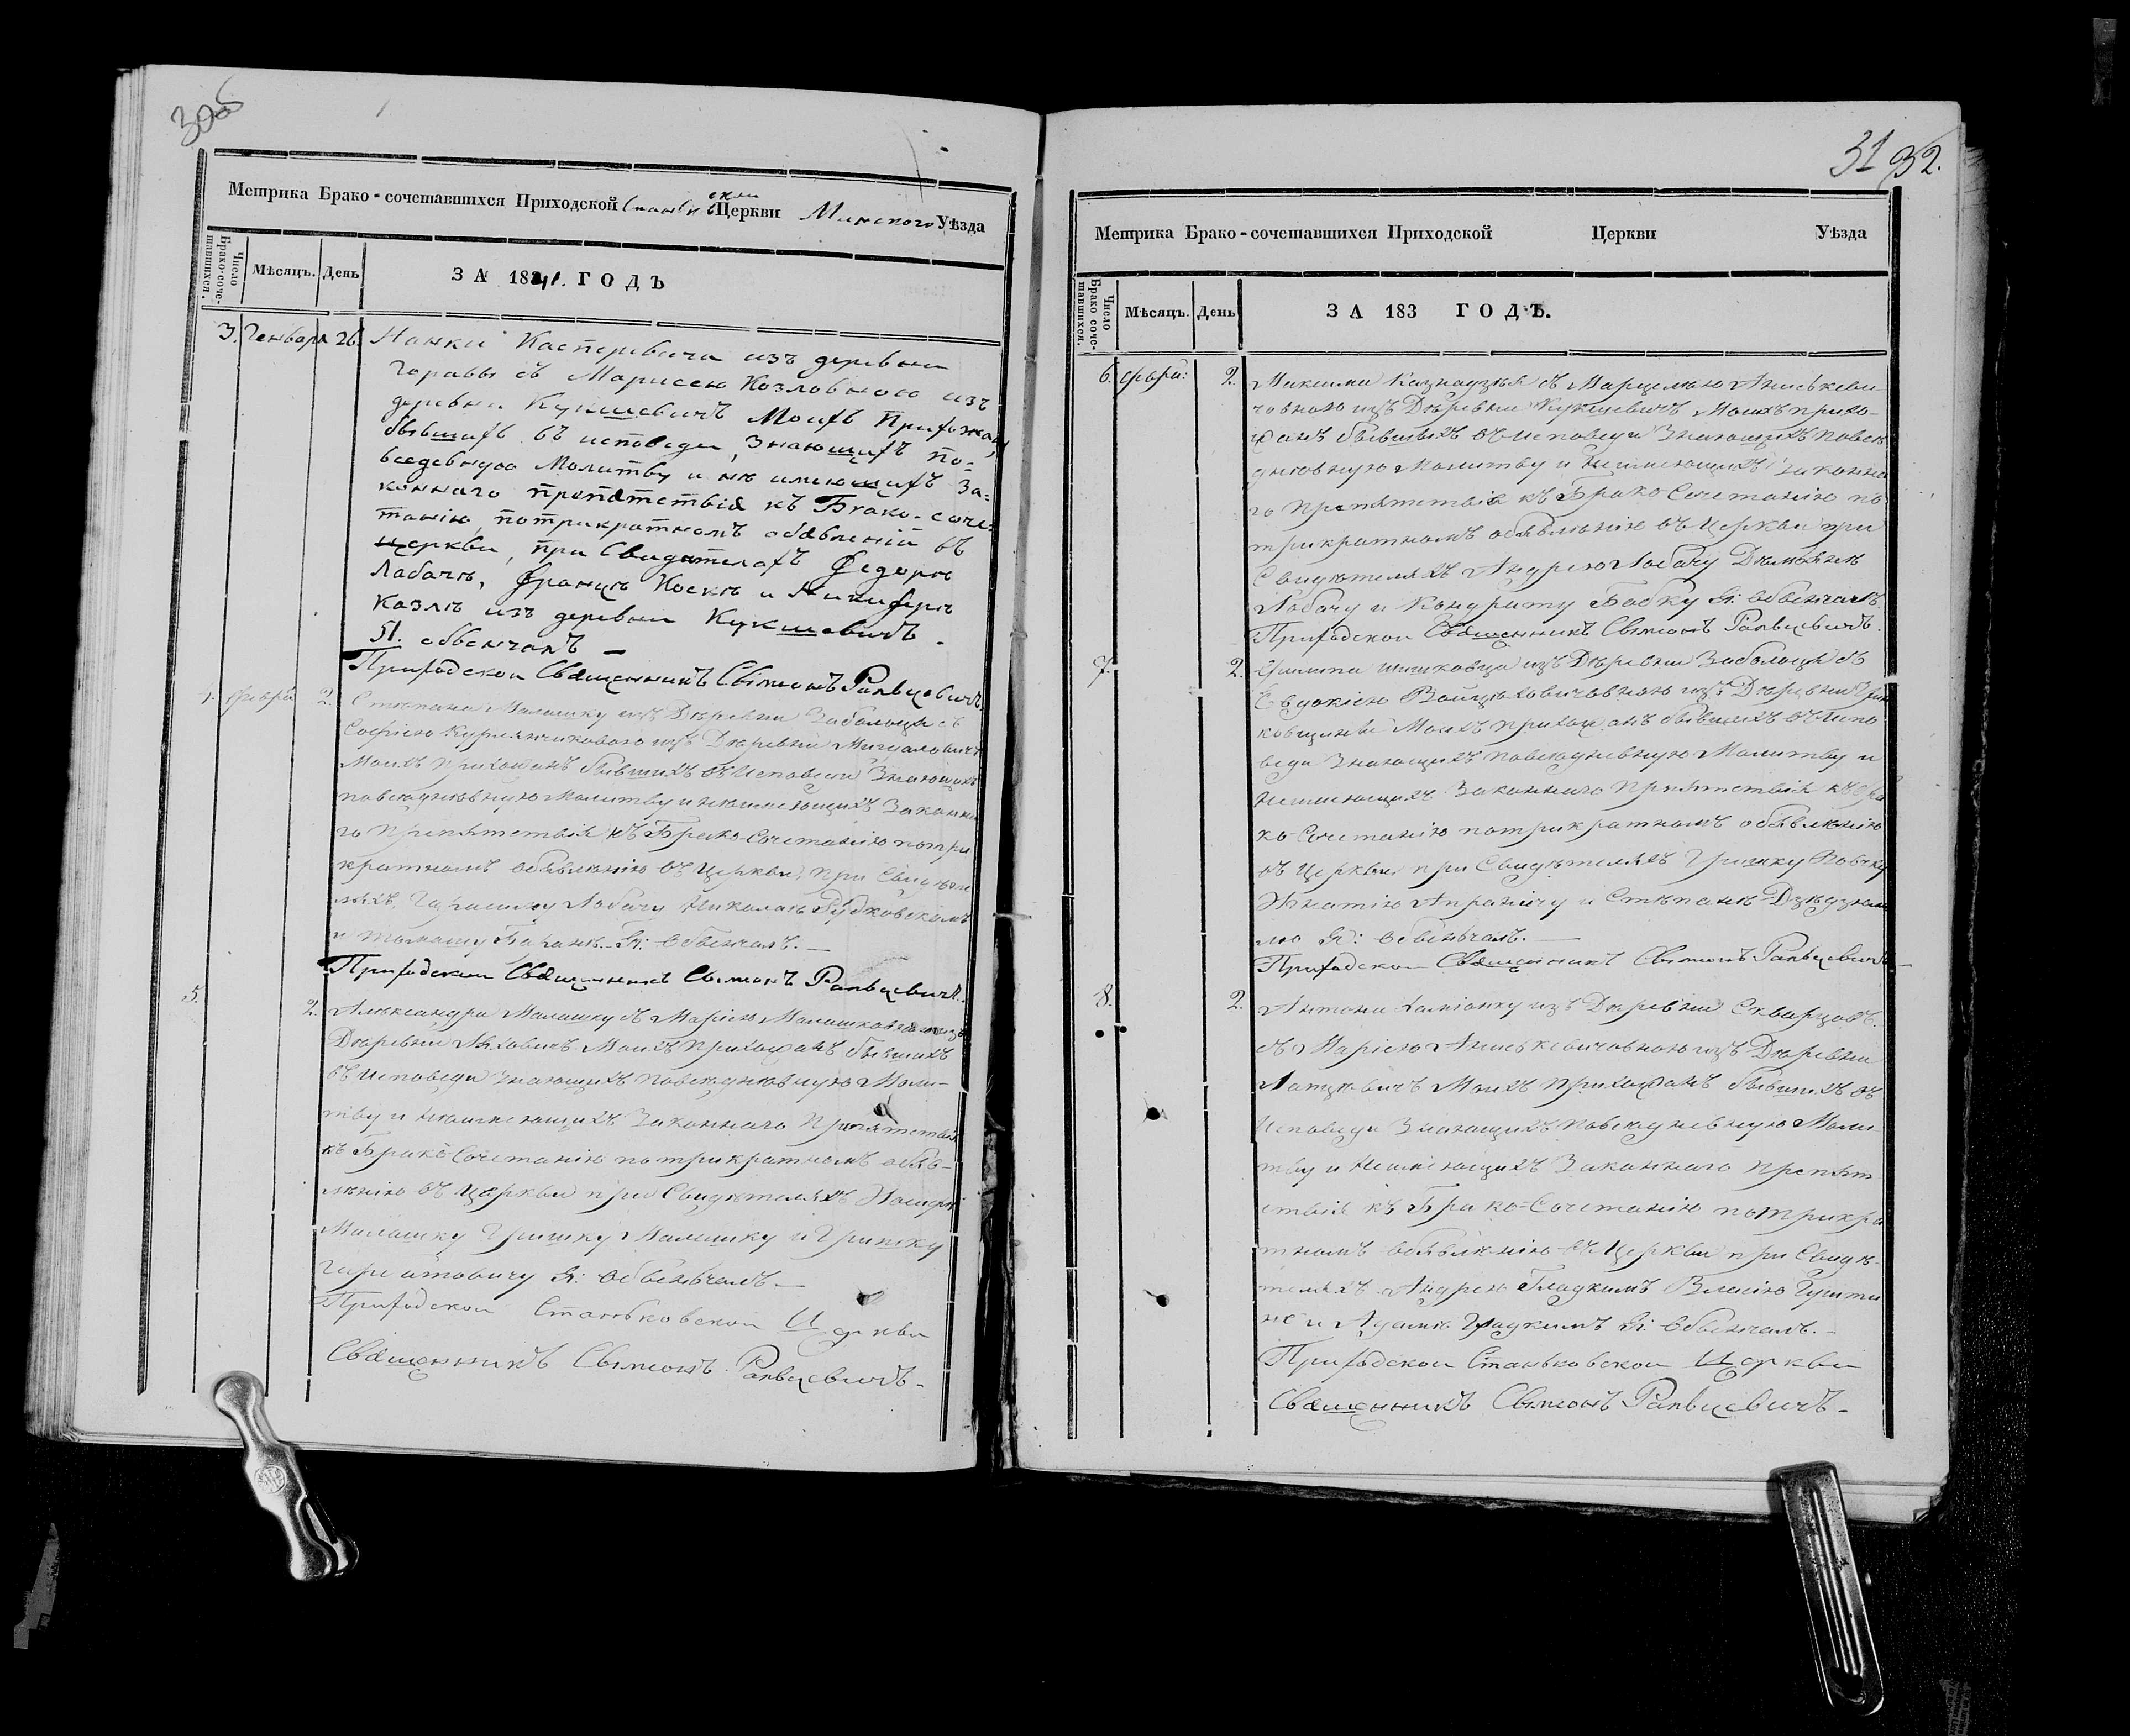 30об
Метрика Брако-сочетавшихся Приходской Церкви Минского Уѣзда
Число Брако-сочетавшихся. Мѣсяцъ. День ЗА 1841. ГОДЪ
3. Генваря 26. Касперовича изъ деревни
с Марисею Козловною изъ
деревни Кукшевичъ Моихъ Прихожан
бывшихъ въ исповеди, Знающихъ по-
вседевную Молитву и не имеющихъ За-
коннаго препятствія къ Брако-соче-
танію, потрикратномъ обявленіи въ
Церкви, при Свидетеляхъ Федоре
Лабаче, Францѣ Носкѣ и Никифоре
Казлѣ изъ деревни Кукшевичъ -
Я. обвенчалъ —
Приходскои Священникъ Сѵмеонъ Рапвцевичъ.
феврал 2. Степана Малашку изъ Деревни Заболоця съ
Софіею изъ Деревни
Моихъ прихожанъ бывшихъ въ Исповеди Знающихъ
повсюдневную Молитву и неимеющихъ Законна
го Препятствія къ Брако-Сочетанію потри
кратномъ обявленію въ Церкви, при Свидете
ляхъ, Гарасиму Лобачу Николаю Рудковскомъ
и Томашу Баранѣ. Я: Обвенчалъ. —
Приходскои Священникъ Сѵмеонъ Рапвцевичъ.
5. 2. Александра Малашку съ Маріею Малашковною изъ
Деревни Ляховичъ Моихъ Прихожанъ бывшихъ
въ Исповеди Знающихъ повсюдневную Моли-
тву и неимеющихъ Законнаго Препятствія
къ Брако-Сочетанію потрикратномъ обяв-
ленію въ Церкви при Свидетеляхъ
Малашку Гришку Малашку и Гришку
Я: Обвенчалъ —
Приходскои Станьковскои Церкви
Священникъ Сѵмеонъ Рапвцевичъ -
31 32.
Метрика Брако-сочетавшихся Приходской Церкви Уѣзда
Число Брако сочетавшихся. Мѣсяцъ. День ЗА 183 ГОДЪ.
6. февра: 2. Максима Казнадзея съ Марцелею Аниськеви-
човною изъ Деревни Кукшевичъ Моихъ прихо-
жанъ бывшихъ въ Исповеди Знающихъ повсю
дневную Молитву и Неимеющихъ Законна
го Препятствія къ Брако Сочетанію по
трикратномъ обявленію въ Церкви при
Свидетеляхъ Андрею Лобачу Демьяне
Лобачу и Кондрату Бобку Я: Обвенчалъ.
Приходскои Священникъ Сѵмеонъ Рапвцевичъ.
7. 2. Филипа изъ Деревни Заболоця съ
Евдокіею изъ Деревни Гри
ковщины Моихъ прихожанъ бывшихъ въ Испо
веди Знающихъ повсюдневную Молитву и
Неимеющихъ Законнаго Препятствія къ Бра
ко-Сочетанію потрикратномъ обявленію
въ Церкви при Свидетеляхъ Гришку
и Степане
лю Я: Обвенчалъ. —
Приходскои Священникъ Сѵмеонъ Рапвцевичъ —
8. 2. Антона изъ Деревни Скварцовъ.
съ Маріею Аниськевичовною изъ Деревни
Моихъ Прихожанъ бывшихъ въ
Исповеди Знающихъ повсюдневную Моли
тву и Неимеющихъ Законнаго Препят
ствія къ Брако-Сочетанію потрикра
тномъ обявленію въ Церкви при Свиде-
теляхъ Андрею Гладкимъ Власію
и Адаме Гладкимъ Я: Обвенчалъ. -
Приходскои Станьковскои Церкви
Священникъ Сѵмеонъ Рапвцевичъ -